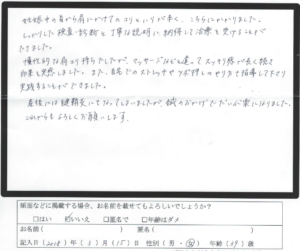 妊娠中の首から肩にかけてのコリとハリが辛く、こちらにかかりました。
しっかりした検査・診断と丁寧な説明に納得して治療を受けることが
できました。
慢性的な肩コリ持ちでしたが、マッサージなどと違ってスッキリ感が長く続き
効果を実感しました。また、自宅でのストレッチやツボ押しのやり方も指導して下さり
実践することができました。
産後には腱鞘炎にもなってしまいましたが、鍼のおかげでだいぶ楽になりました。
これからもよろしくお願いします。
紙面などに掲載する場合、お名前を載せてもよろしいでしょうか？
□はい ☑いいえ □匿名で □年齢はダメ
お名前( ) 匿名( )
記入日( 2018 )年( 3 )月( 15 )日 性別(男・女) 年齢( 39 )歳